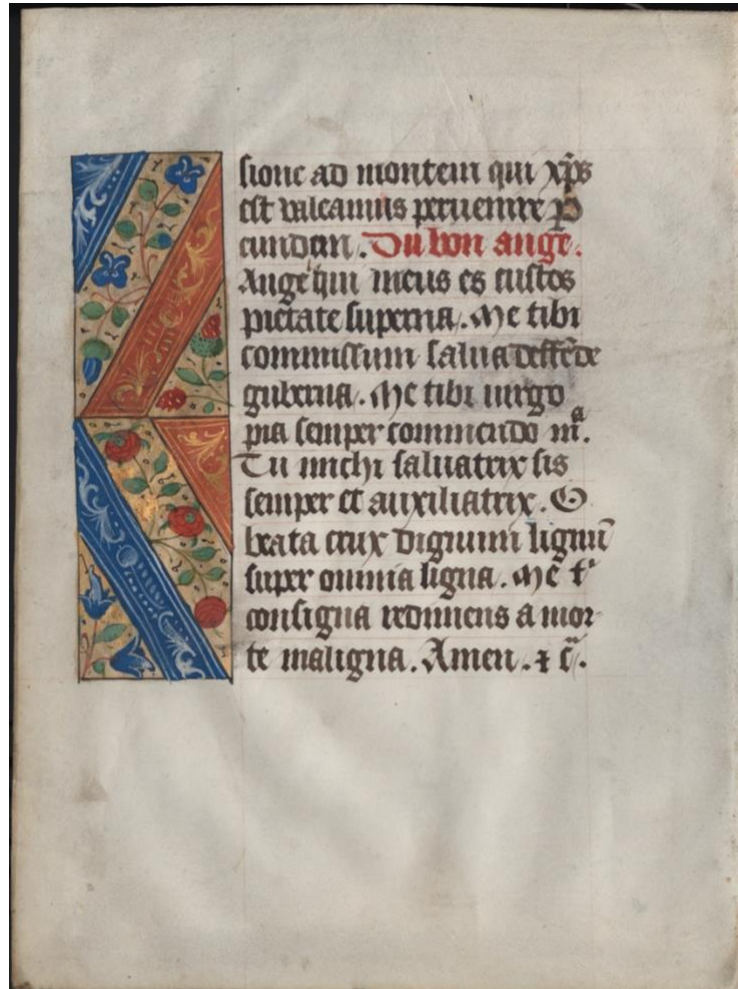 sione ad montem qui xp̄s
est valeamus peruenire P̄
eundem. Du bon ange.
Ange qui meus es custos
pietate superna. Me tibi
commissum salua deffēde
guberna. Me tibi uirgo
pia semper commendo mª.
Tu michi saluatrix sis
semper et auxiliatrix. O
beata crux dignum lignū
super omnia ligna. Me tⁱ
consigna redimens a mor
te maligna. Amen. ⁊ c̄.